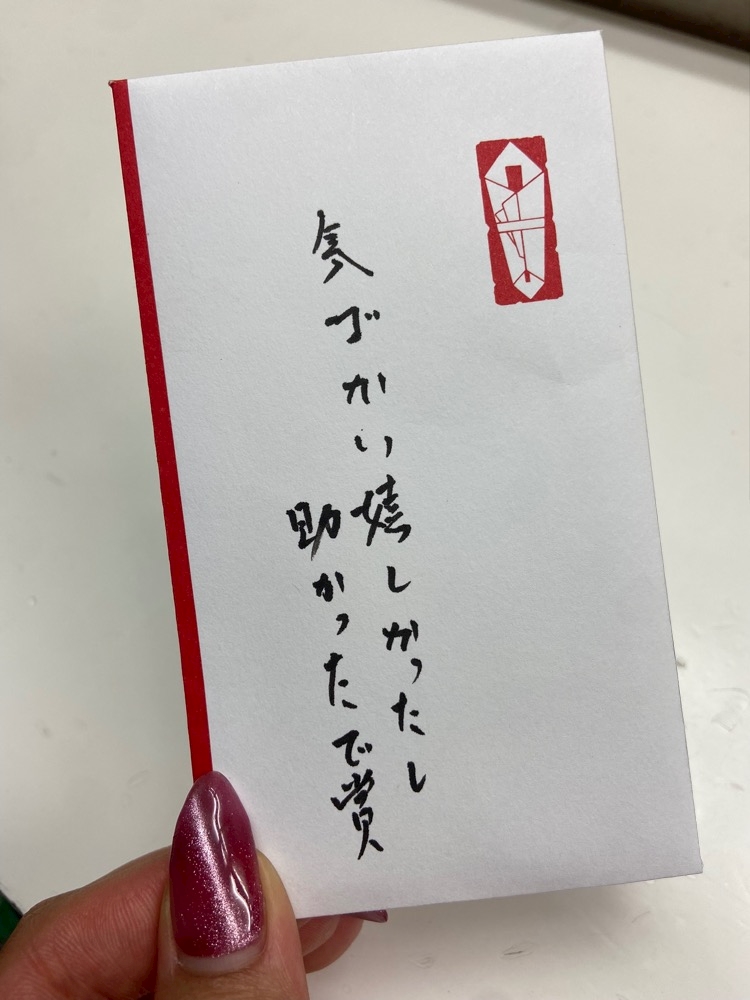 気づかい
嬉しかったし
助かったで賞